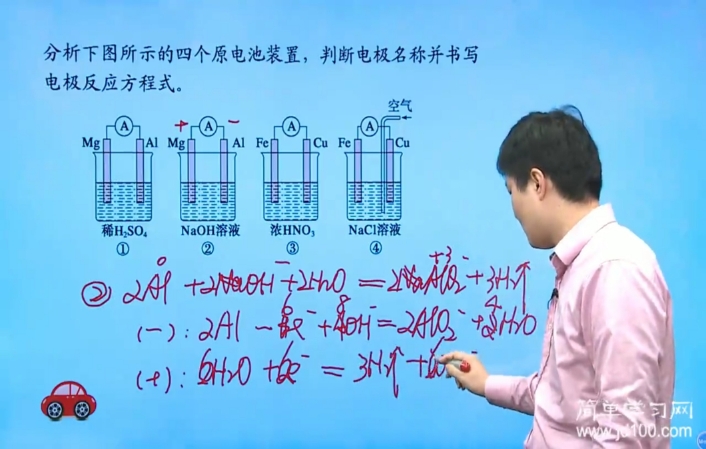 分析下图所示的四个原电池装置，判断电极名称并书写
电极反应方程式。
空气
+ A -
A A A A
Mg Al Mg Al Fe Cu Fe Cu
稀H₂SO₄ NaOH溶液 浓HNO₃ NaCl溶液
① ② ③ ④
② 2Al + 2NaOH + 2H₂O = 2NaAlO₂ + 3H₂↑
(-): 2Al - 6e⁻ + 8OH⁻ = 2AlO₂⁻ + 4H₂O
(+): 6H₂O + 6e⁻ = 3H₂↑ +
简单学习网
www.jd100.com